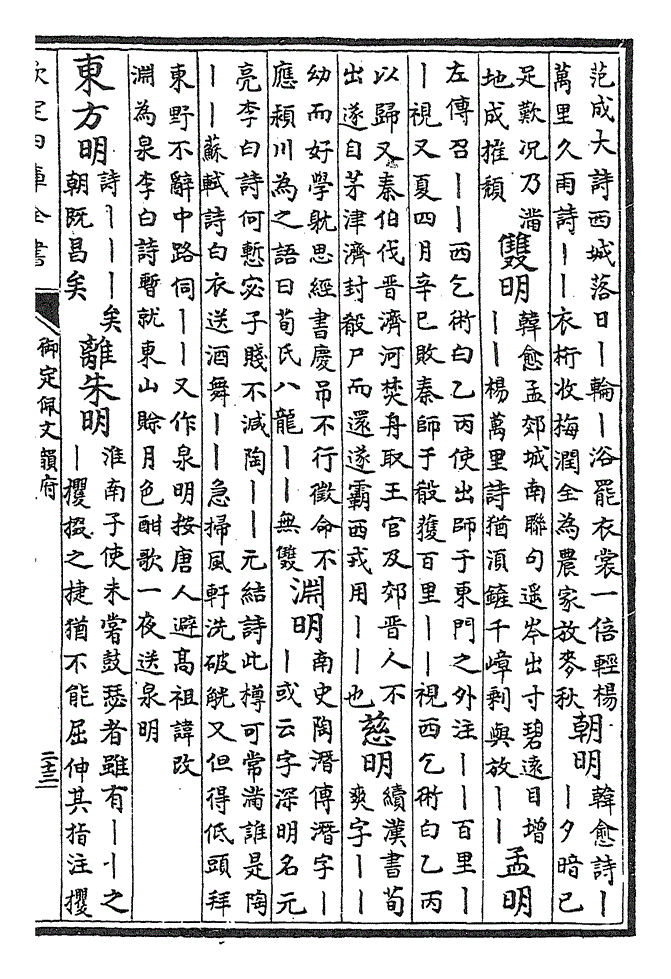 范成大詩西城落日｜輪｜浴罷衣裳一倍輕楊
萬里久雨詩｜｜衣桁收梅潤全為農家放麥秋
朝明
韓愈詩｜
｜夕暗已
足歎况乃滿
地成摧頹
雙明
韓愈孟郊城南聯句遥岑出寸碧遠目增
｜｜楊萬里詩猶湏鏟千嶂剩與放｜｜
孟明
左傳召｜｜西乞術白乙丙使出師于東門之外注｜｜百里｜
｜視又夏四月辛巳敗秦師于殽獲百里｜｜視西乞術白乙丙
以歸又秦伯伐晉濟河焚舟取王官及郊晉人不
出遂自茅津濟封殽尸而還遂霸西戎用｜｜也
慈明
續漢書荀
爽字｜｜
幼而好學躭思經書慶弔不行徵命不
應潁川為之語曰荀氏八龍｜｜無雙
淵明
南史陶潛傳潛字｜
｜或云字深明名元
亮李白詩何慙宓子賤不減陶｜｜元結詩此樽可常滿誰是陶
｜｜蘇軾詩白衣送酒舞｜｜急掃風軒洗破觥又但得低頭拜
東野不辭中路伺｜｜又作泉明按唐人避髙祖諱改
淵為泉李白詩暫就東山賖月色酣歌一夜送泉明
東方明
詩｜｜｜矣
朝既昌矣
離朱明
淮南子使未嘗鼓瑟者雖有｜｜之
｜攫掇之捷猶不能屈伸其指注攫
欽定四庫全書
御定佩文韻府
二十三